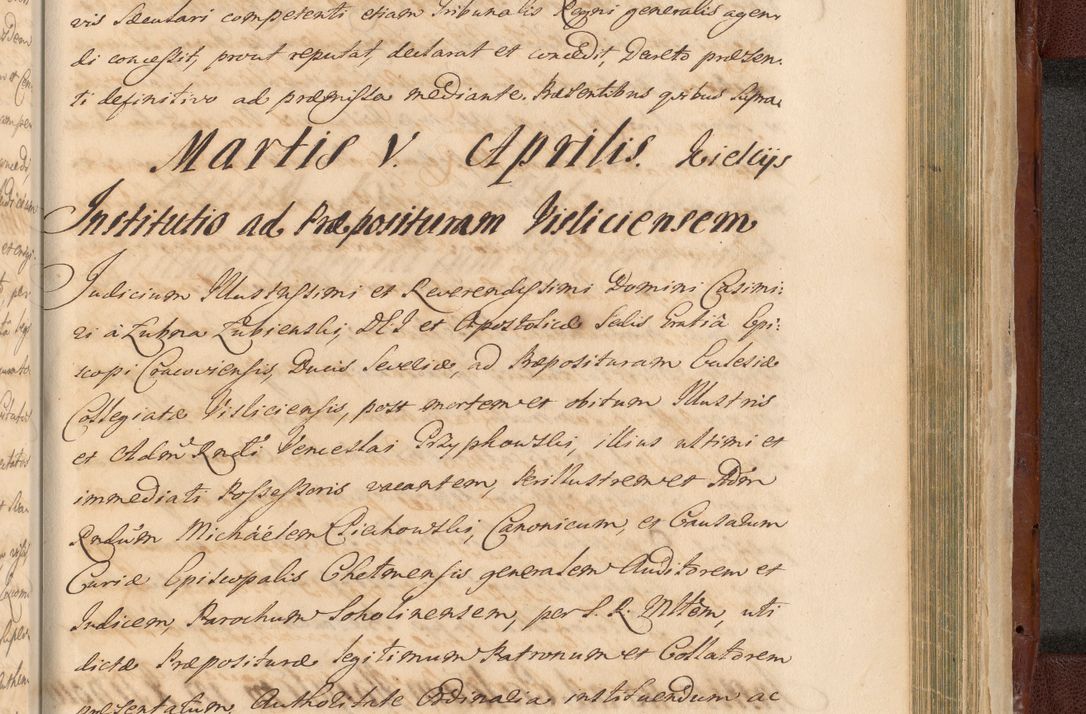 vis Sæculari competenti etiam Tribunalis Regni generalis agen-
di concessit, prout reputat, declarat et concedit, Decreto præsen-
ti definitivo ad præmissa mediante. Præsentibus quibus supra
Martis V. Aprilis. Kielciis
Institutio ad Præposituram Visliciensem
Judicium Illustrissimi et Reverendissimi Domini Casimi-
ri à Łubna Łubienski, DEI et Apostolicæ Sedis Gratiâ Epi-
scopi Cracoviensis, Ducis Severiæ, ad Præposituram Ecclesiæ
Collegiatæ Visliciensis, post mortem et obitum Illustris
et Adm Rndi Venceslai Przypkowski, illius ultimi et
immediati Possessoris vacantem, Perillustrem et Adm
Rndum Michäelem Ciechowski, Canonicum, et Causarum
Curiæ Episcopalis Chelmensis generalem Auditorem et
Judicem, Parochum Sokolinensem, per S. R. Mttem, uti
dictæ Præposituræ legitimum Patronum et Collatorem
præsentatum, Authoritate Ordinaria instituendum ac